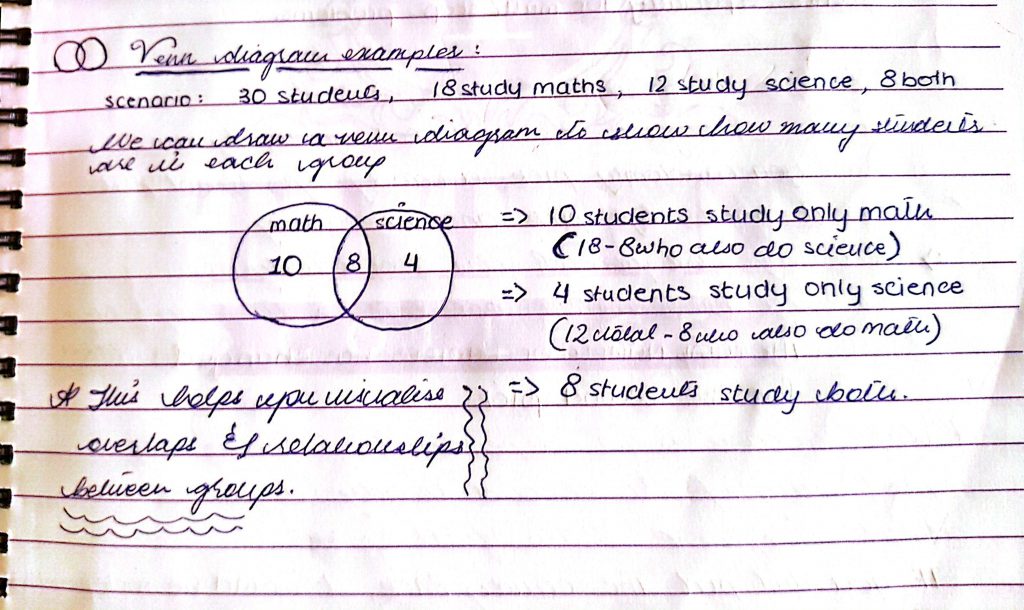 Venn diagram examples:
scenario: 30 students, 18 study maths, 12 study science, 8 both
We can draw a venn diagram to show how many students
are in each group
math science
10 8 4
=> 10 students study only math
(18-8 who also do science)
=> 4 students study only science
(12 total - 8 who also do math)
=> 8 students study both.
* This helps you visualise
overlaps & relationships
between groups.